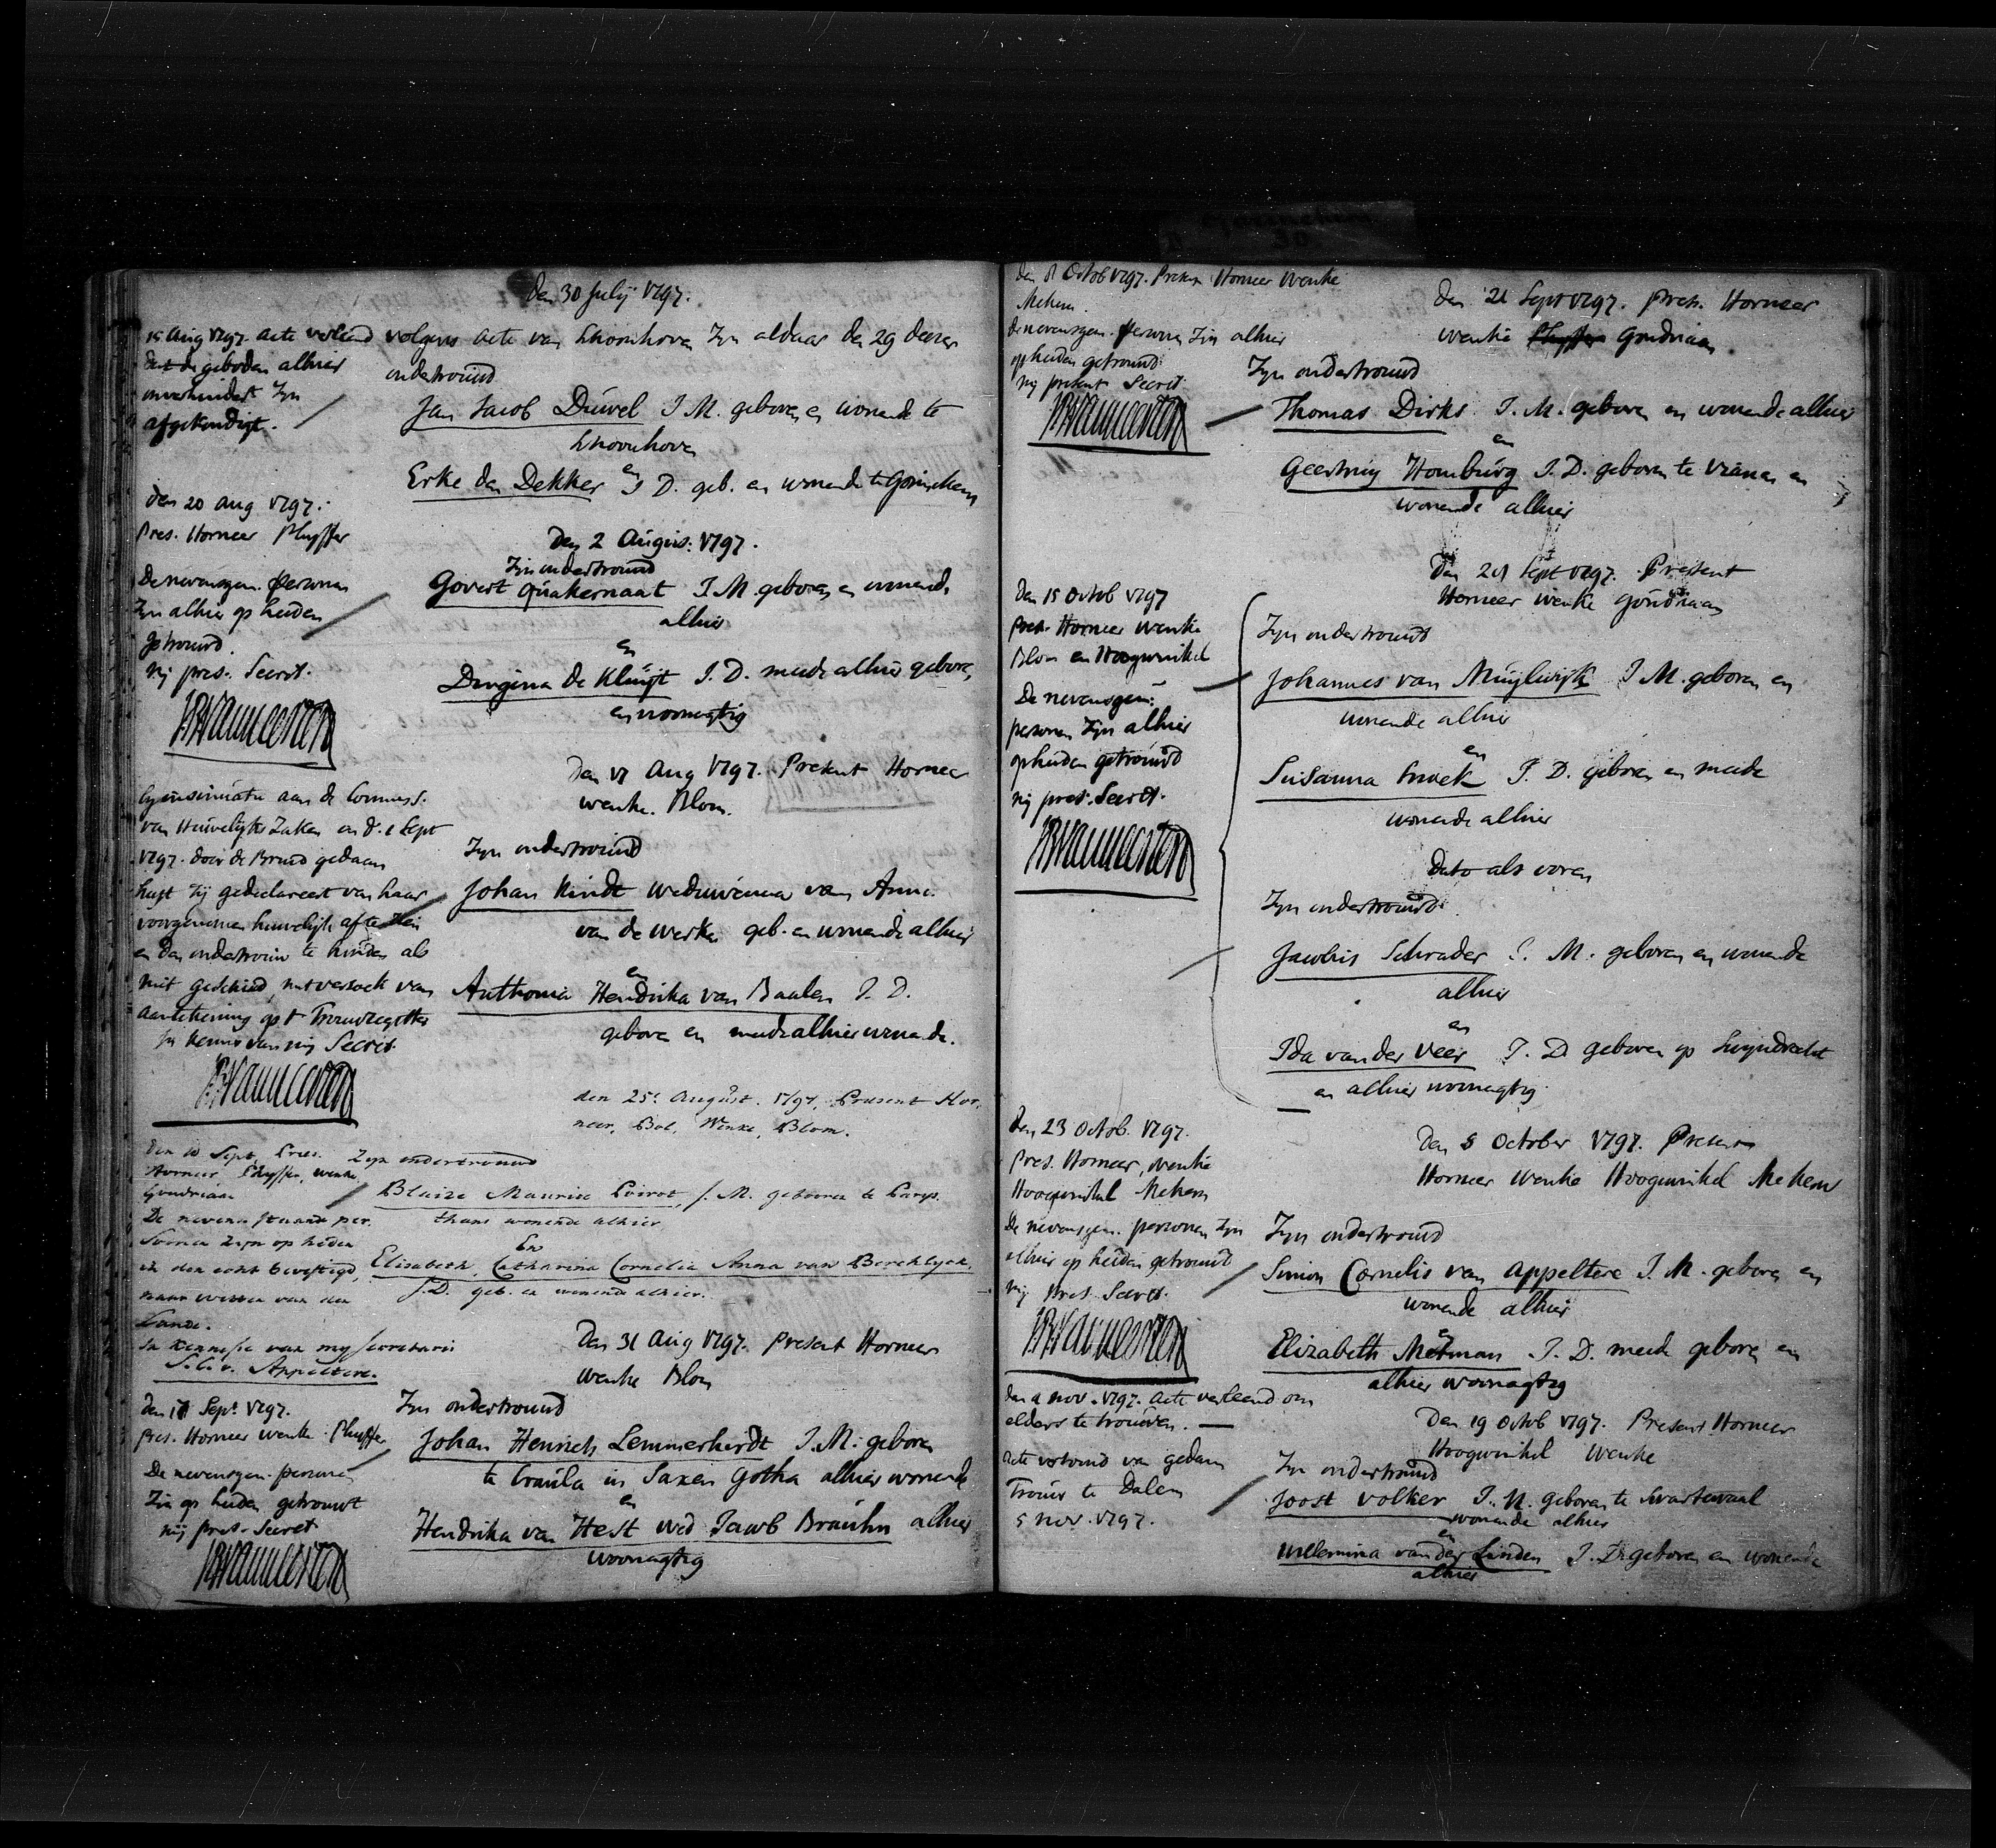 den 30 July 1797.
15 Aug 1797. acte verleend
dat de geboden alhier
onverhindert zyn
afgekondigt.
volgens acte van Schoonhoven Zyn aldaar den 29 deeser
ondertrouwd
Jan Jacob Duwel J. M. geboren en wonende te
Schoonhoven
en
Erke den Dekker J D. geb. en wonende te Gorinchem
den 20 aug 1797.
Pres. Horneer Pluyffer
De nevensgem. persoonen
Zyn alhier op heden
getrouwd.
mij pres. Secret.
Den 2 Augus: 1797.
Zyn ondertrouwd
Govert Quakernaat J. M. geboren en wonende
alhier
en
Dingena de Kluijt J. D. meede alhier geboren
en woonagtig
By insinuatie aan de Commiss.
van Huwelijks Zaken en d. 1 Sept
1797. door de Bruid gedaan
heeft zij gedeclareert van haar
voorgenomen huwelijk af te zien
en den ondertrouw te houden als
niet geschied, met versoek van
aantekening op 't Trouwregister
in kennis van mij Secret.
Den 17 Aug 1797. Present Horneer
Wenke. Blom.
Zyn ondertrouwd
Johan Kindt weduwenaar van Anna
van de Werken geb. en wonende alhier
en
Anthonia Hendrika van Baalen J. D.
geboren en meede alhier wonende.
den 25e August. 1797, Present Hor-
neer, Bol, Wenke, Blom.
Den 10 Sept, Pres.
Horneer, Pluyffer, Wenke,
Goudriaan
De nevenstaande per-
soonen zyn op heden
in den echt bevestigd,
naar wetten van den
Lande.
In kennisse van my secretaris
S. C. v. Appeltere.
Zyn ondertrouwd
Blaize Maurice Poirot, J. M. geboren te Parys.
thans wonende alhier
En
Elisabeth, Catharina Cornelia Anna van Berchlyck.
J. D. geb. en wonende alhier.
den 17 Sept 1797.
pres. Horneer Wenke. Pluyffer
De nevensgem. personen
Zyn op heden getrouwt
mij pres. Secret
Den 31 Aug 1797. Present Horneer
Wenke Blom
Zyn ondertrouwd
Johan Henrich Lemmerherdt J. M. geboren
te Craula in Saxen Gotha alhier wonende
en
Hendrika van Hest wed Jacob Brauhn alhier
woonagtig
den 8 Octob 1797. Present Horneer Wenke
Mekern.
de nevensgem. persoonen Zyn alhier
op heden getrouwd.
mij present Secret.
Den 21 Sept 1797. Pres. Horneer
Wenke Pluyffer Goudriaan
Zyn ondertrouwd
Thomas Dirks. J. M. geboren en wonende alhier
en
Geertruy Homburg J. D. geboren te Vianen en
wonende alhier
Den 15 Octob 1797
Pres. Horneer Wenke
Blom en Hoogwinkel
De nevensgem:
personen Zyn alhier
op heden getrouwd
mij pres. Secret.
Den 28 Sept 1797. Present
Horneer Wenke Goudriaan
Zyn ondertrouwd
Johannes van Muylwijk J. M. geboren en
wonende alhier
en
Susanna Snoek J. D. geboren en meede
wonende alhier
Dato als voren
Zyn ondertrouwd.
Jacobus Schrader J. M. geboren en wonende
alhier
en
Ida van der Veer J. D. geboren op Swyndrecht
en alhier woonagtig.
Den 23 Octob. 1797.
pres. Horneer, Wenke
Hoogwinkel Mekern
De nevensgem. persoonen Zyn
alhier op heden getrouwd
mij Pres. Secret.
Den 5 October 1797. Present
Horneer Wenke Hoogwinkel Mekern
Zyn ondertrouwd
Simon Cornelis van Appeltere J. M. geboren en
wonende alhier
en
Elizabeth Metman J. D. meede geboren en
alhier woonagtig
den 4 nov. 1797. acte verleend om
elders te trouwen.
Acte vertoond van gedaan
Trouw te Dalem
5 nov. 1797.
Den 19 Octob 1797. Present Horneer
Hoogwinkel Wenke
Zyn ondertrouwd
Joost Volker J. M. geboren te Swartewaal
wonende alhier
en
Willemina van der Linden J. D. geboren en wonende
alhier